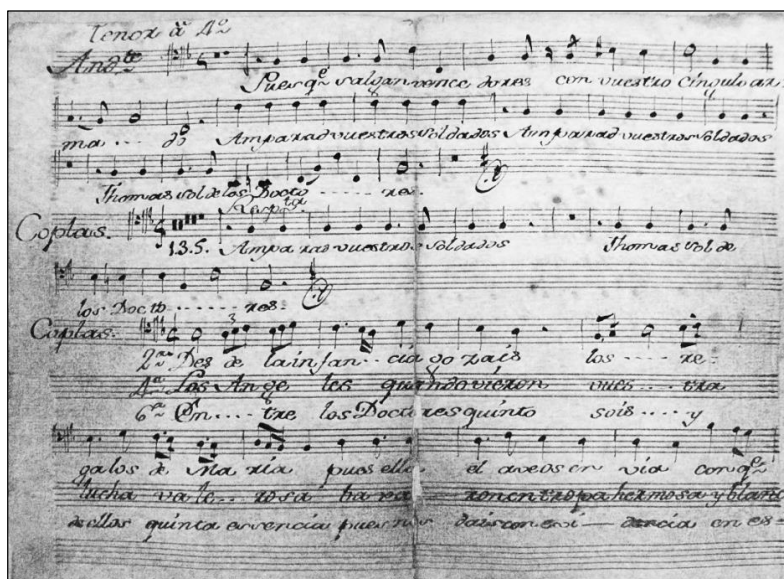 Tenor à 4º
Andte
Pues qe salgan vencedores con vuestro cíngulo ar-
ma --- do Amparad vuestros soldados Amparad vuestros soldados
Thomas sol de los Docto ----- res.
Respta
Coplas. 1.3.5. Amparad vuestros soldados Thomas sol de
los Docto ------ res.
Coplas. 3
2a Des de la infan -- cia gozais los ---- re-
4a Los Ange les quando vieron vues --- tra
6a En ---- tre los Doctores quinto sois ---- y
galos de Maria pues ella el aveos en via con qe
lucha vale -- rosa baxa ron en tropa hermosa y blanc
de ellos quinta esencia pues nos dais con evi -- dencia en es-